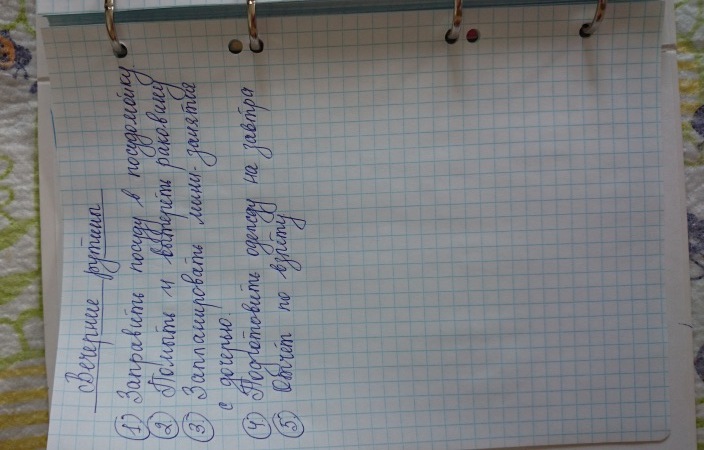 Вечерние рутины
1 Заправить посуду в посудомойку
2 Помыть и вытереть раковину
3 Запланировать мини-занятия
с дочерью.
4 Подготовить одежду на завтра
5 Обчёт по взлёту